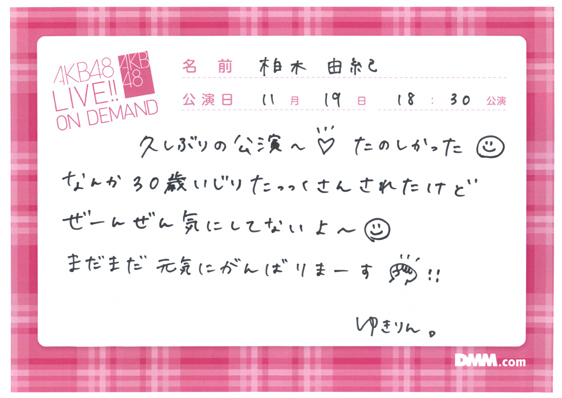 AKB48
LIVE!!
ON DEMAND
AKB
48
名前 柏木 由紀
公演日 11月 19日 18:30公演
久しぶりの公演〜♡ たのしかった
なんか30歳いじりたっっくさんされたけど
ぜーんぜん気にしてないよ〜
まだまだ元気にがんばりまーす!!
ゆきりん。
DMM.com